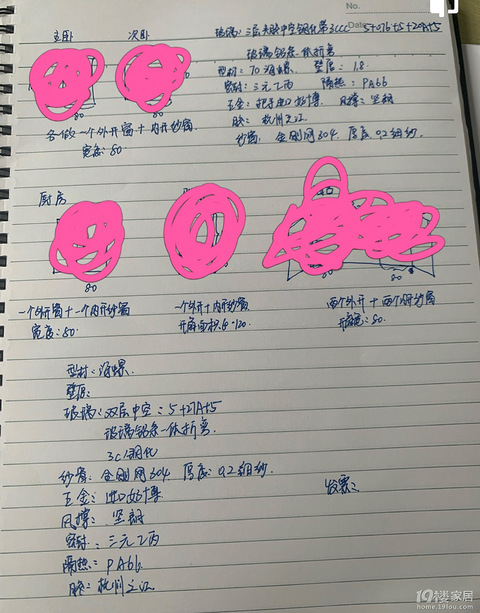 主卧 次卧 玻璃: 三层夹胶中空钢化等3CCC 5+0.76+5+27A+5
玻璃铝条一体折弯
型材: 70海螺. 壁厚: 1.8
密封: 三元乙丙 隔热: PA66
五金: 把手进口好博. 风撑: 坚朗
胶: 杭州之江
纱窗: 金刚网304 厚度: 0.2细纱.
80 80
各做一个外开窗+内开纱窗
宽度: 80
厨房
80 80
一个外开窗+一个内开纱窗
宽度: 80
一个外开+内开纱窗
两个外开+两个内开纱窗
型材: 海螺.
壁厚:
玻璃: 双层中空: 5+27A+5
玻璃铝条一体折弯
3C钢化
纱窗: 金刚网304 厚度: 0.2细纱.
五金: 进口好博
发票:
风撑: 坚朗
密封: 三元乙丙
隔热: PA66
胶: 杭州之江
19楼家居
home.19lou.com